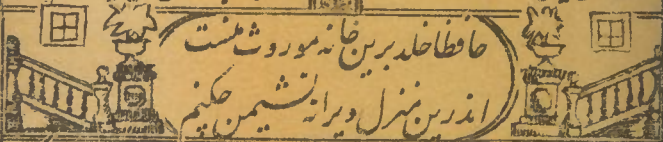 حافظا خلد برین خانه موروث منست
اندرین منزل ویرانه نشیمن چکنم